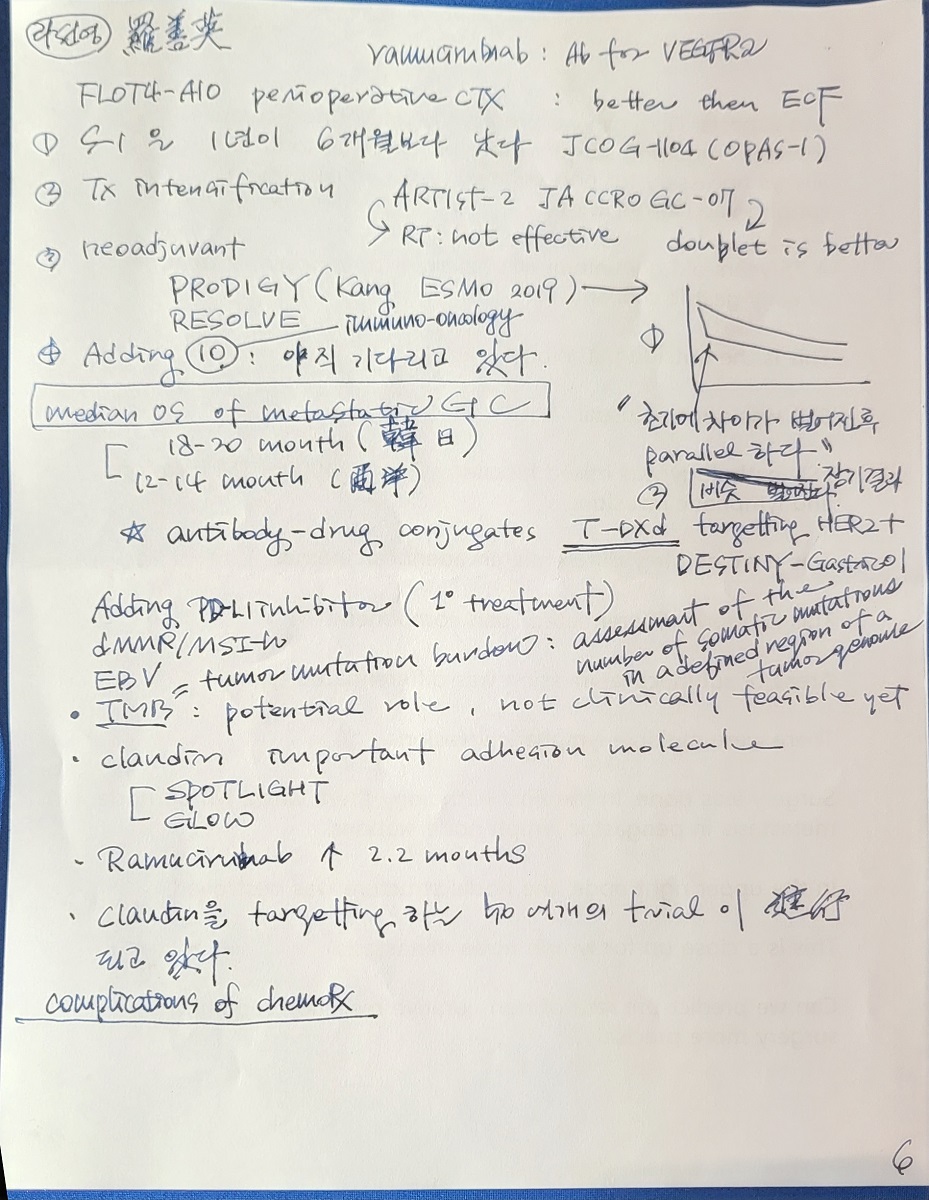 라선영 羅善英
ramucirumab : Ab for VEGFR2
FLOT4-AIO perioperative CTX : better then ECF
① S-1 을 1년이 6개월보다 낫다 JCOG-1104 (OPAS-1)
② Tx intensification ARTIST-2 JACCRO GC-07
RT : not effective doublet is better
③ neoadjuvant
PRODIGY (Kang ESMO 2019) →
RESOLVE immuno-oncology
④ Adding IO : 아직 기다리고 있다.
①
"초기에 차이가 벌어진 후
parallel 하다"
② 비슷 장기결과
median OS of metastatic GC
18-20 month (韓 日)
12-14 month (西洋)
☆ antibody-drug conjugates T-DXd targetting HER2+
DESTINY-Gastric01
Adding PD-L1 inhibitor (1° treatment)
dMMR/MSI-H
EBV = tumor mutation burden : assessment of the
number of somatic mutations
in a defined region of a
tumor genome
• TMB : potential role, not clinically feasible yet
• claudin important adhesion molecule
SPOTLIGHT
GLOW
- Ramucirumab ↑ 2.2 months
• claudin을 targetting 하는 10 여개의 trial 이 進行
되고 있다.
complications of chemoRx
6